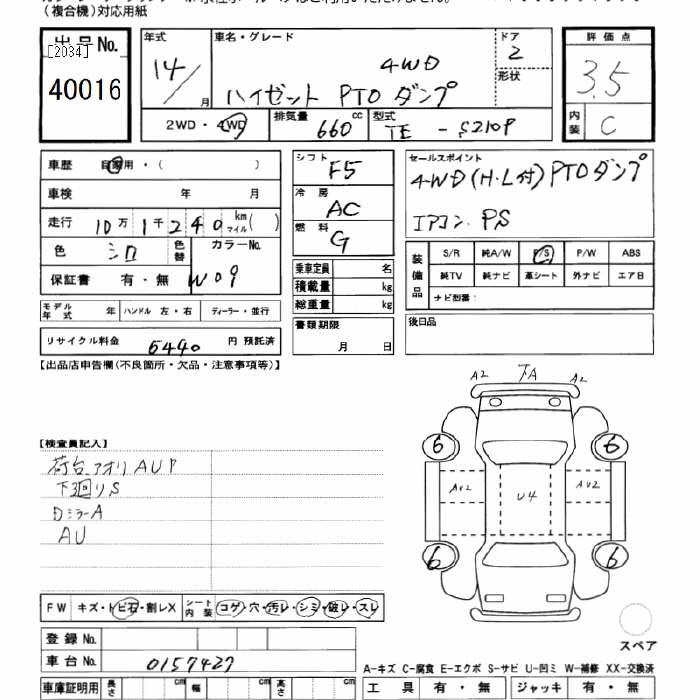 (複合機)対応用紙
出品No.
[2034]
40016
年式 14/ 月
車名・グレード
4WD
ハイゼット PTO ダンプ
ドア 2
形状
2WD・4WD
排気量 660 cc
型式 TE-S210P
評価点 3.5
内装 C
車歴 自家用・( )
車検 年 月
走行 10万1千240 km マイル( )
色 シロ 色替 カラーNo.
保証書 有・無 W09
モデル年式 年 ハンドル 左・右 ディーラー・並行
リサイクル料金 6490 円 預託済
シフト F5
冷房 AC
燃料 G
乗車定員 名
積載量 kg
総重量 kg
書類期限
月 日
セールスポイント
4WD(H・L付)PTOダンプ
エアコン PS
装備品
S/R 純A/W P/S P/W ABS
純TV 純ナビ 革シート 外ナビ エア日
ナビ型番:
後日品
【出品店申告欄(不良箇所・欠品・注意事項等)】
【検査員記入】
荷台アオリAUP
下廻りS
DミラーA
AU
A2 下A A2
6 6
AU2 U4 AU2
6 6
スペア
FW キズ・トビ石・割レX シート内装 コゲ・穴・汚レ・シミ・破レ・スレ
登録No.
車台No. 0157427
車庫証明用 長さ cm 幅 cm 高さ cm
A-キズ C-腐食 E-エクボ S-サビ U-凹ミ W-補修 XX-交換済
工具 有・無 ジャッキ 有・無